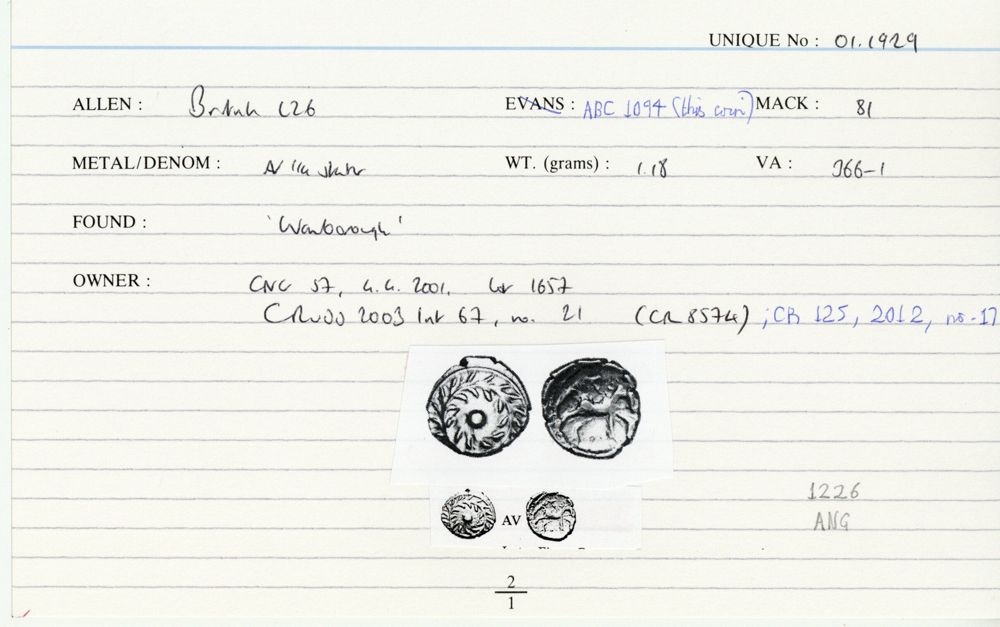 UNIQUE No : 01.1929
ALLEN : British L26 EVANS : ABC 1094 (this coin) MACK : 81
METAL/DENOM : AV 1/4 stater WT. (grams) : 1.18 VA : 366-1
FOUND : 'Wanborough'
OWNER : CNC 57, 4.4.2001, lot 1657
CR 2003 list 67, no. 21 (CR 8574) ; CR 125, 2012, no. 17
AV
1226
ANG
2
1